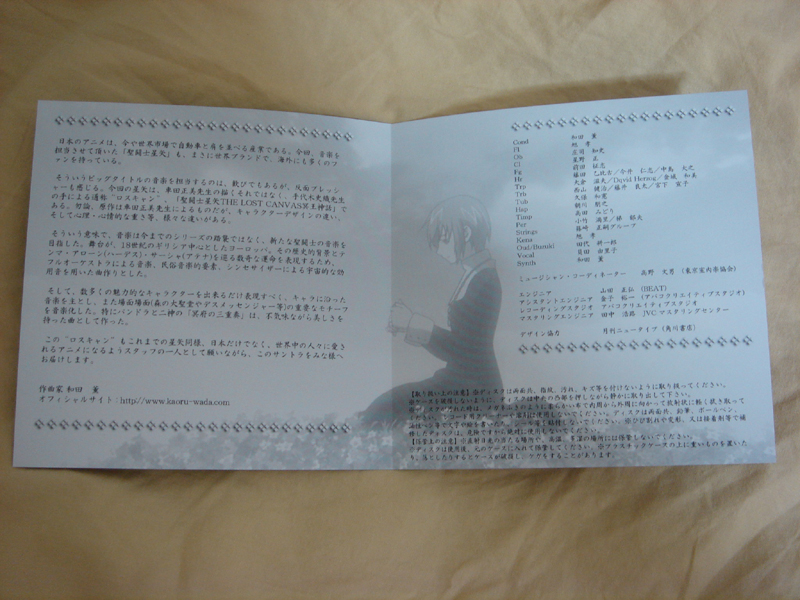 日本のアニメは、今や世界市場で自動車と肩を並べる産業である。今回、音楽を
担当させて頂いた「聖闘士星矢」も、まさに世界ブランドで、海外にも多くのフ
ァンを持っている。
そういうビッグタイトルの音楽を担当するのは、歓びでもあるが、反面プレッシ
ャーも感じる。今回の星矢は、車田正美先生の描くそれではなく、手代木史織先生
の手による通称“ロスキャン”、「聖闘士星矢THE LOST CANVAS冥王神話」で
ある。勿論、原作は車田正美先生によるものだが、キャラクターデザインの違い、
そして心理・心情的な重さ等、様々な違いがある。
そういう意味で、音楽は今までのシリーズの踏襲ではなく、新たな聖闘士の音楽を
目指した。舞台が、18世紀のギリシア中心としたヨーロッパ。その歴史的背景とテ
ンマ・アローン(ハーデス)・サーシャ(アテナ)を巡る数奇な運命を表現するため、
フルオーケストラによる音楽、民俗音楽的要素、シンセサイザーによる宇宙的な効
用音を用いた曲作りとした。
そして、数多くの魅力的なキャラクターを出来るだけ表現すべく、キャラに沿った
音楽を主とし、また場面場面(森の大聖堂やデスメッセンジャー等)の重要なモチーフ
を音楽化した。特にパンドラと二神の「冥府の三重奏」は、不気味ながら美しさを
持った曲として作った。
この“ロスキャン”もこれまでの星矢同様、日本だけでなく、世界中の人々に愛さ
れるアニメになるようスタッフの一人として願いながら、このサントラをみな様へ
お届けします。
作曲家 和田 薫
オフィシャルサイト:http://www.kaoru-wada.com
Cond 和田 薫
Pl 旭 孝
Ob 庄司 知史
Cl 星野 正
Fg 前田 征志
Hr 藤田 乙比古/今井 仁志/中島 大之
Trp 大倉 滋夫/David Herzog/金城 和美
Trb 西山 健治/藤井 良太/宮下 宣子
Tub 大塚
Hap 朝川 朋之
Timp 高田 みどり
Per 小竹 満里/梯 郁夫
Strings 篠崎 正嗣グループ
Kena 旭 孝
Oud/Buzuki 田代 耕一郎
Vocal 貝田 由里子
Synth 和田 薫
ミュージシャン・コーディネーター 高野 大秀 (東京室内楽協会)
エンジニア 山田 正弘 (HEAT)
アシスタントエンジニア 金子 裕一 (アバコクリエイティブスタジオ)
レコーディングスタジオ アバコクリエイティブスタジオ
マスタリングエンジニア 田中 浩路 JVC マスタリングセンター
デザイン協力 月刊ニュータイプ (角川書店)
【取り扱い上の注意】※ディスクは両面共、指紋、汚れ、キズ等を付けないように取り扱ってください。